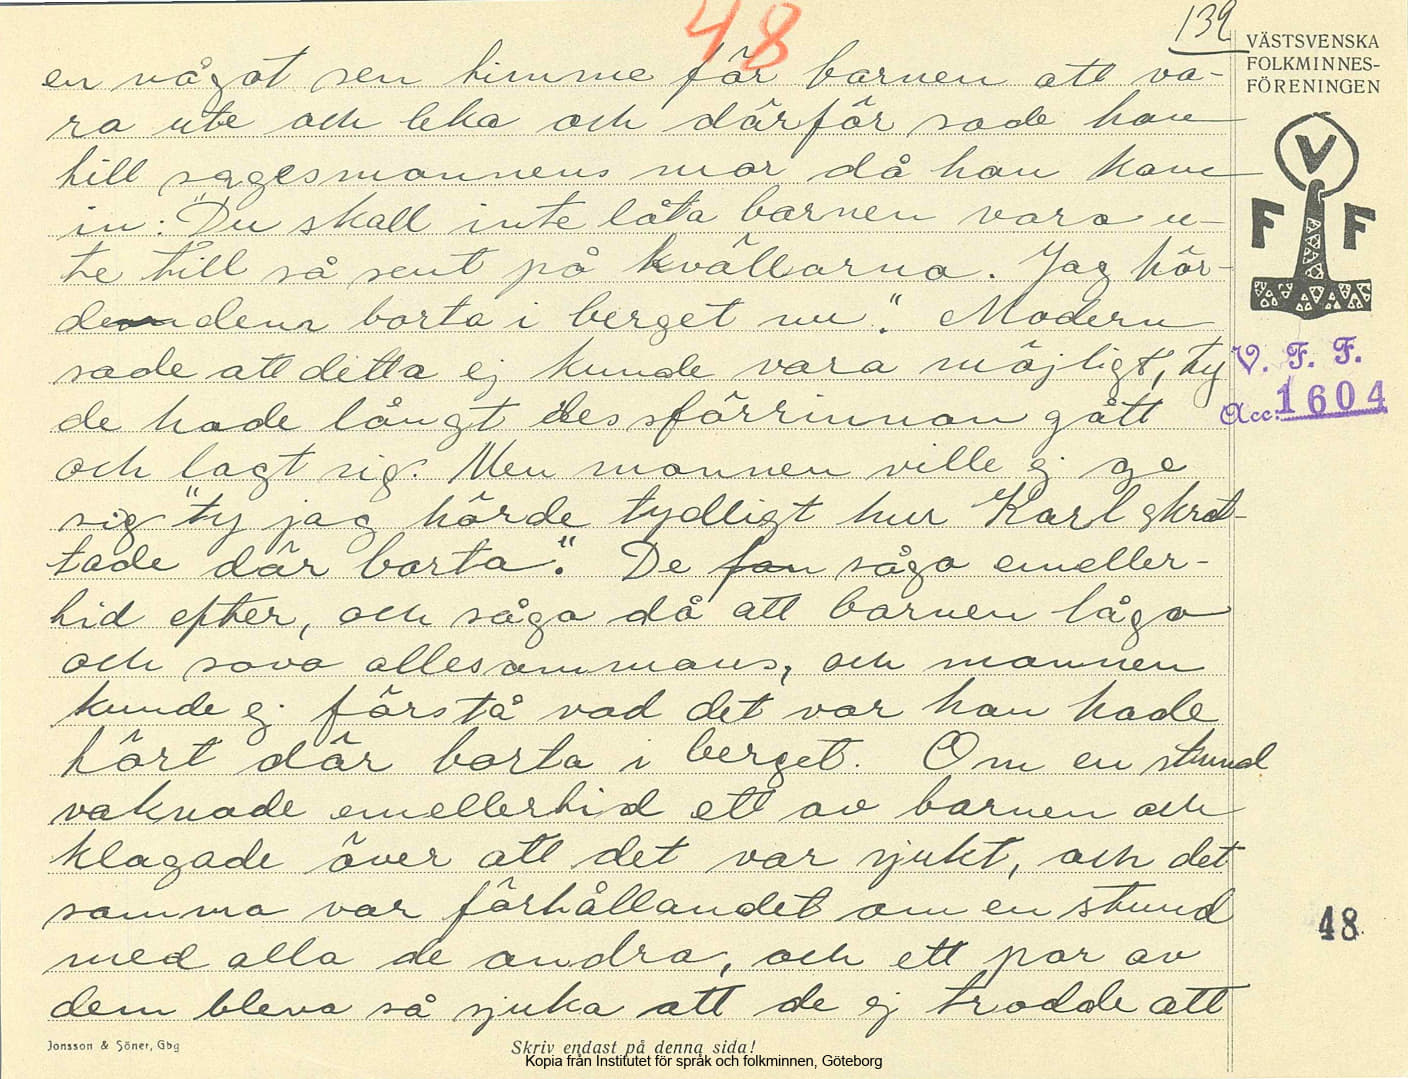 48
139
VÄSTSVENSKA
FOLKMINNES-
FÖRENINGEN
V
F F
V. F. F.
Acc: 1604
en något sen timme för barnen att va-
ra ute och leka och därför sade han
till sagesmannens mor då han kom
in: "Du skall inte låta barnen vara u-
te till så sent på kvällarna. Jag hör-
de dem borta i berget nu". Modern
sade att detta ej kunde vara möjligt, ty
de hade långt dessförrinnan gått
och lagt sig. Men mannen ville ej ge
sig "ty jag hörde tydligt hur Karl skrat-
tade där borta". De fan sågo emeller-
tid efter, och sågo då att barnen lågo
och sova allesammans, och mannen
kunde ej förstå vad det var han hade
hört där borta i berget. Om en stund
vaknade emellertid ett av barnen och
klagade över att det var sjukt, och det
samma var förhållandet om en stund
med alla de andra, och ett par av
dem bleva så sjuka att de ej trodde att
48
Jonsson & Söner, Gbg
Skriv endast på denna sida!
Kopia från Institutet för språk och folkminnen, Göteborg